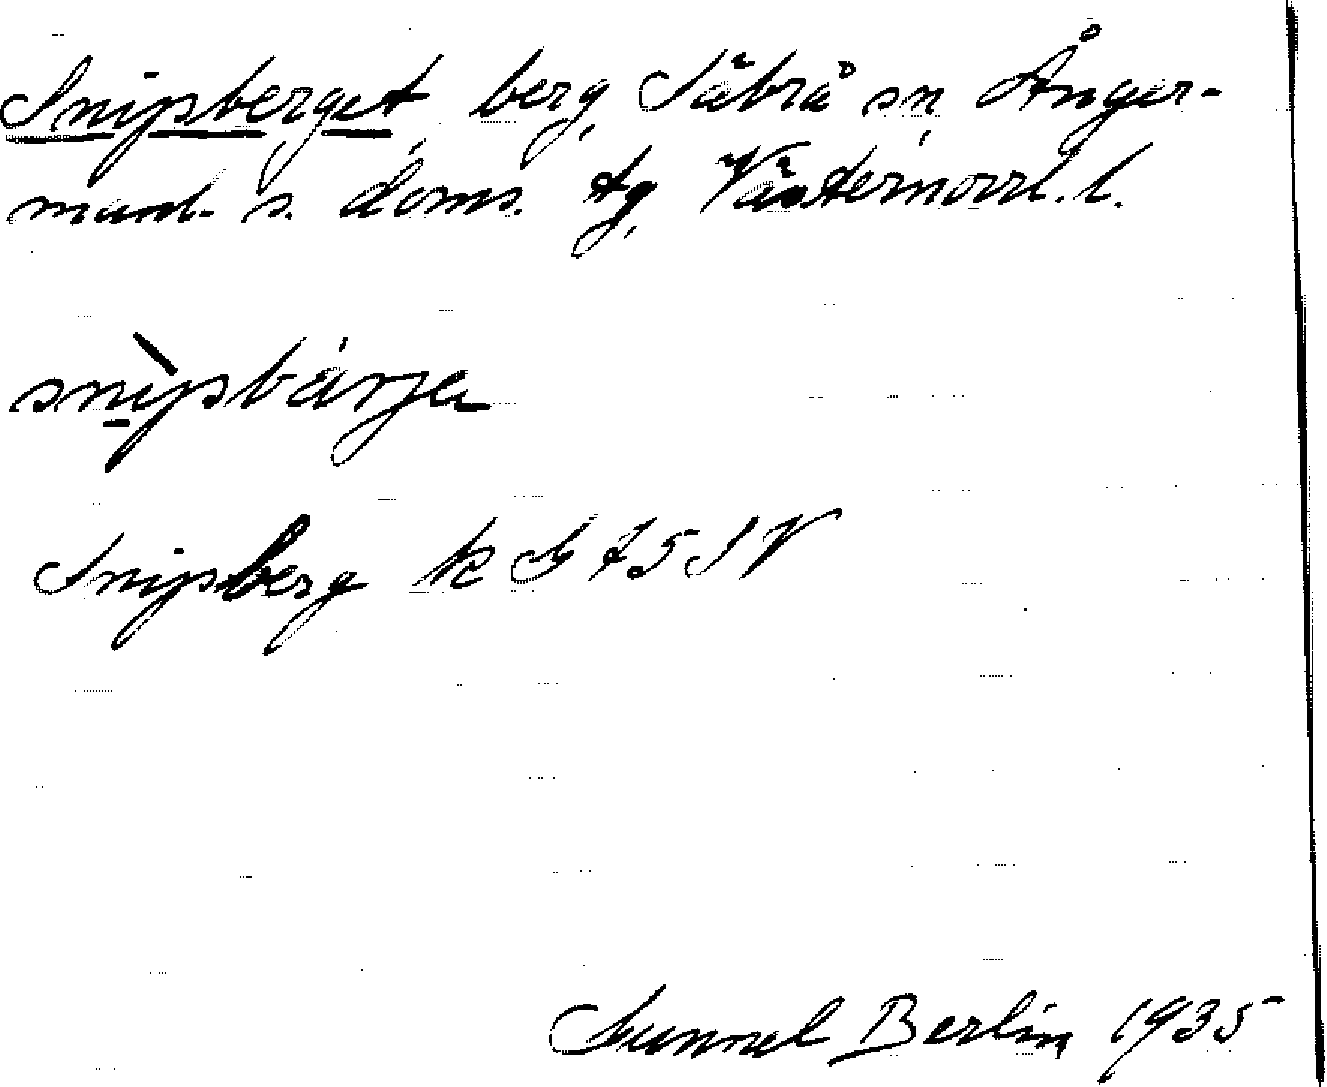 Snipsberget, berg, Säbrå sn, Ånger-
manl. s. doms. tg, Västernorrl. l.
snìpsbárja
Snipsberg k G 75 SV
Gunnel Berlin 1935